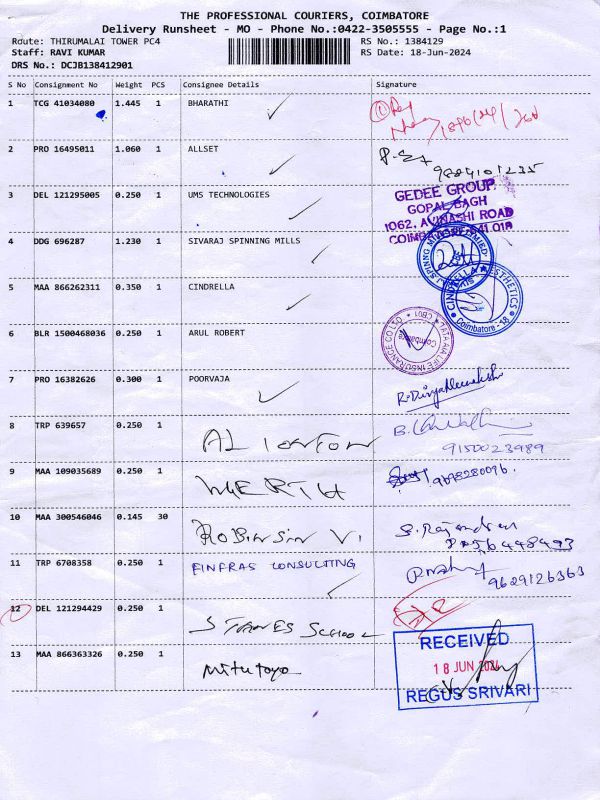 THE PROFESSIONAL COURIERS, COIMBATORE
Delivery Runsheet - MO - Phone No.:0422-3505555 - Page No.:1
Route: THIRUMALAI TOWER PC4 RS No.: 1384129
Staff: RAVI KUMAR RS Date: 18-Jun-2024
DRS No.: DCJB138412901
S No Consignment No Weight PCS Consignee Details Signature
1 TCG 41034080 1.445 1 BHARATHI
2 PRO 16495011 1.060 1 ALLSET
3 DEL 121295005 0.250 1 UMS TECHNOLOGIES
GEDEE GROUP
GOPAL BAGH
1062, AVINASHI ROAD
COIMBATORE-641 018
4 DDG 696287 1.230 1 SIVARAJ SPINNING MILLS
5 MAA 866262311 0.350 1 CINDRELLA
CINDRELLA AESTHETICS
Coimbatore - 18
6 BLR 1500468036 0.250 1 ARUL ROBERT
TATA AIA LIFE INSURANCE CO LTD
Coimbatore
7 PRO 16382626 0.300 1 POORVAJA
8 TRP 639657 0.250 1
9150023989
9 MAA 109035689 0.250 1
9698280096.
10 MAA 300546046 0.145 30
11 TRP 6708358 0.250 1 EINFRAS CONSULTING
9629126363
12 DEL 121294429 0.250 1 STANES SCHOOL
13 MAA 866363326 0.250 1 Mitutoyo
RECEIVED
18 JUN 2024
REGUS SRIVARI